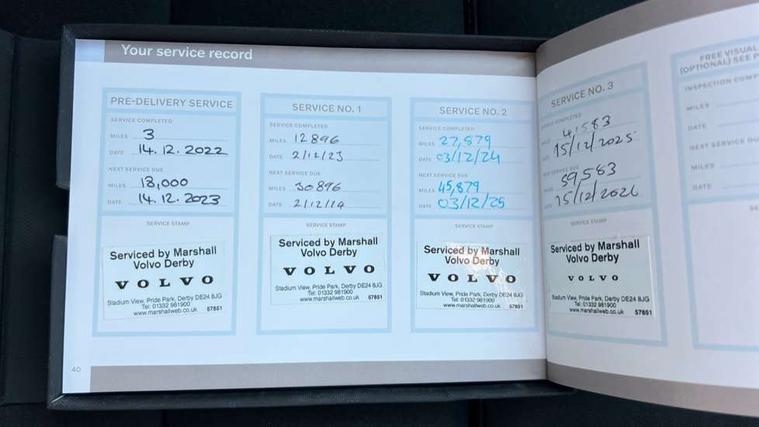 Your service record
PRE-DELIVERY SERVICE
SERVICE COMPLETED
MILES 3
DATE 14.12.2022
NEXT SERVICE DUE
MILES 18,000
DATE 14.12.2023
SERVICE STAMP
Serviced by Marshall
Volvo Derby
VOLVO
Stadium View, Pride Park, Derby DE24 8JG
Tel: 01332 981900
www.marshallweb.co.uk 57851
SERVICE NO. 1
SERVICE COMPLETED
MILES 12896
DATE 2/12/23
NEXT SERVICE DUE
MILES 30896
DATE 2/12/14
SERVICE STAMP
Serviced by Marshall
Volvo Derby
VOLVO
Stadium View, Pride Park, Derby DE24 8JG
Tel: 01332 981900
www.marshallweb.co.uk 57851
SERVICE NO. 2
SERVICE COMPLETED
MILES 27,879
DATE 03/12/24
NEXT SERVICE DUE
MILES 45,879
DATE 03/12/25
SERVICE STAMP
Serviced by Marshall
Volvo Derby
VOLVO
Stadium View, Pride Park, Derby DE24 8JG
Tel: 01332 981900
www.marshallweb.co.uk 57851
SERVICE NO. 3
COMPLETED
15/12/2025
SERVICE DUE
59,583
15/12/2026
SERVICE STAMP
Serviced by Marshall
Volvo Derby
VOLVO
Stadium View, Pride Park, Derby DE24 8JG
Tel: 01332 981900
www.marshallweb.co.uk 57851
FREE VISUAL
(OPTIONAL) SEE P
INSPECTION COMP
MILES
DATE
NEXT SERVICE DU
MILES
DATE
40